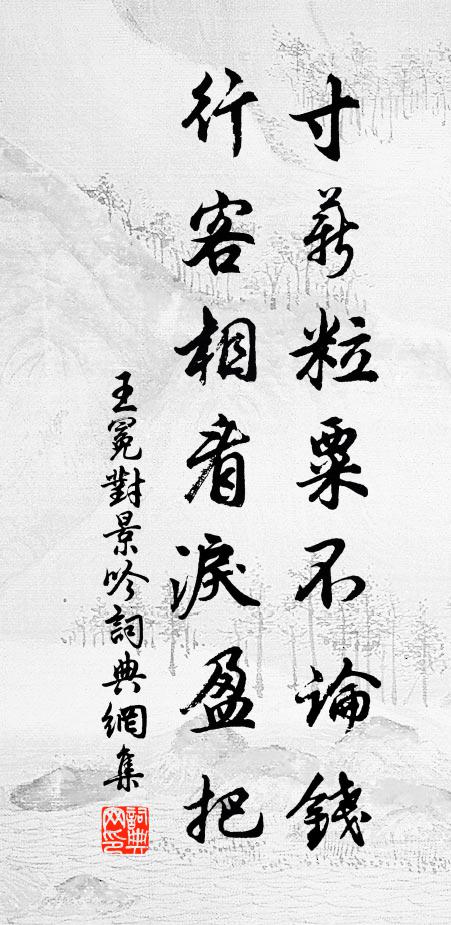 寸薪粒粟不論錢
行客相看淚盈把
王冕對景吟詞典網集
詞典網印